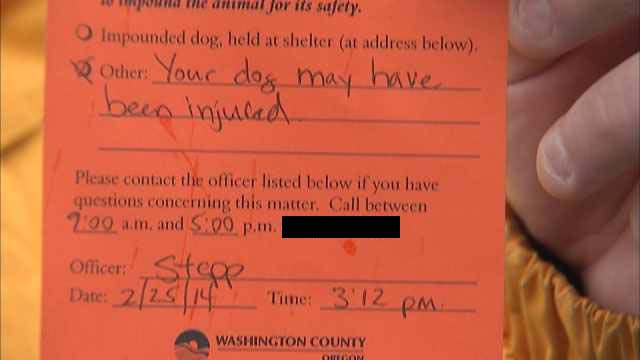 to impound the animal for its safety.
Impounded dog, held at shelter (at address below).
Other: Your dog may have
been injured
Please contact the officer listed below if you have
questions concerning this matter. Call between
9:00 a.m. and 5:00 p.m.
Officer: Stepp
Date: 2/25/14 Time: 3:12 pm.
WASHINGTON COUNTY
OREGON